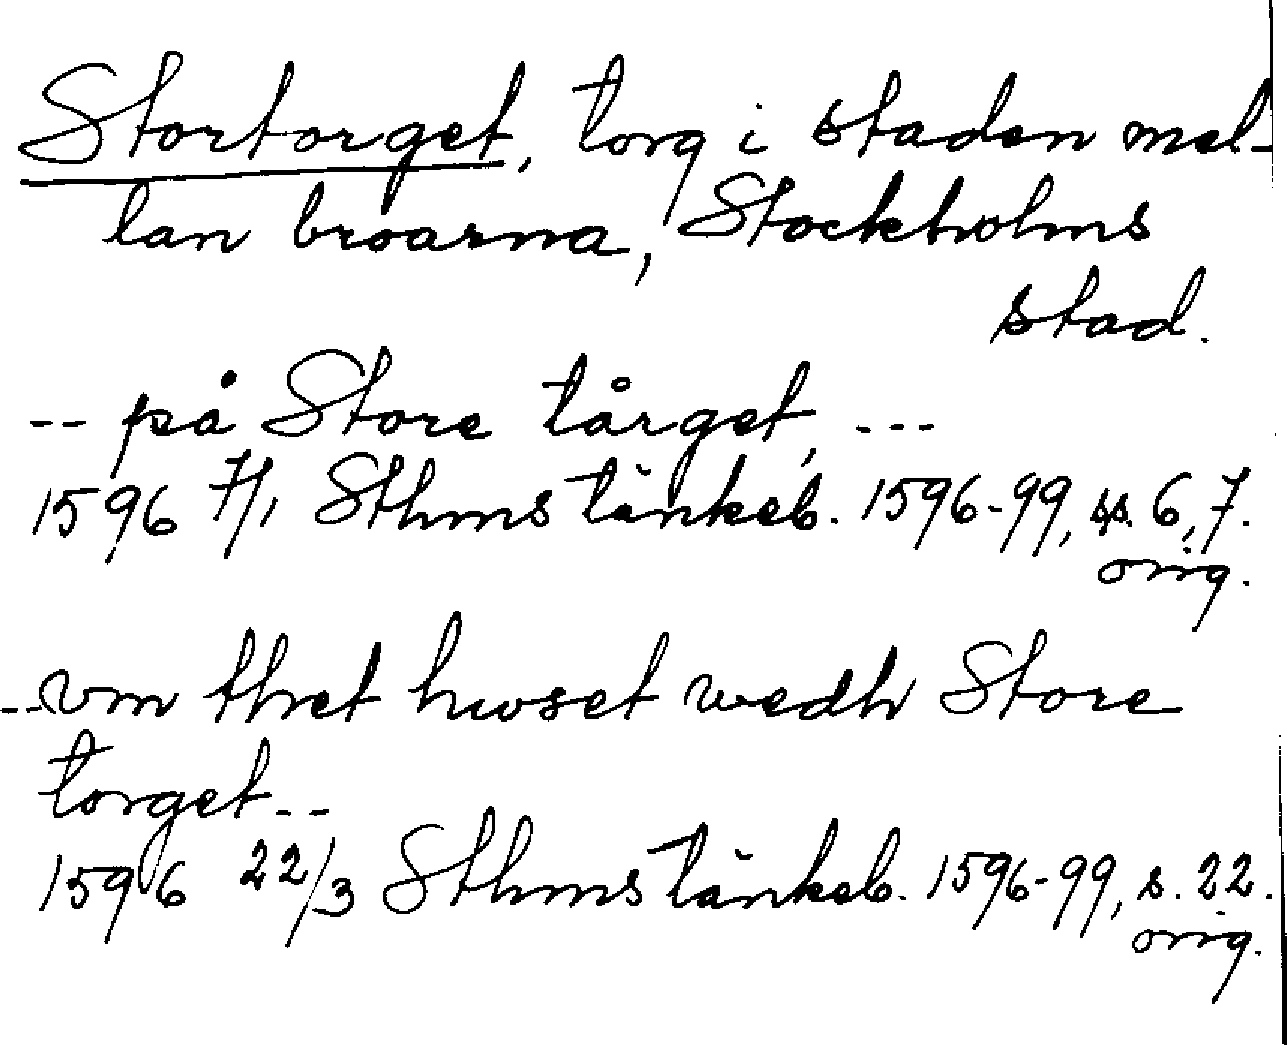 Stortorget, torg i staden mel-
lan broarna, Stockholms
stad.
-- på Store tårget, ---
1596 7/1 Sthms tänkeb. 1596-99, ss. 6, 7.
orig.
--vm thet hwset wedh Store
torget--
1596 22/3 Sthms tänkeb. 1596-99, s. 22.
orig.